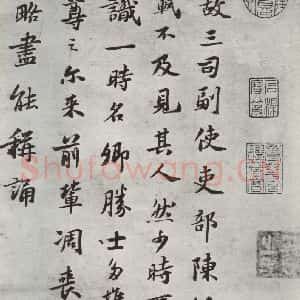 故三司副使吏部陳
軾不及見其人然少時
識一時名卿勝士多推
尊之尔来前輩凋喪
略盡能稱誦
Shufawang.CN